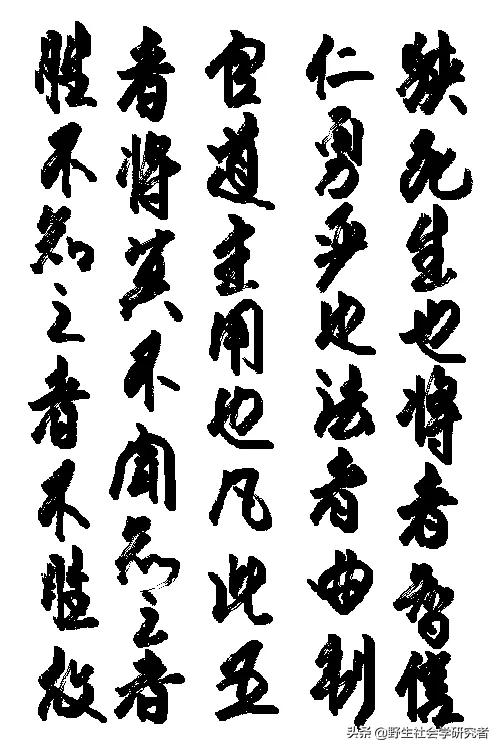 狭死生也将者智信
仁勇严也法者曲制
官道主用也凡此五
者将莫不闻知之者
胜不知之者不胜故
头条 @野生社会学研究者